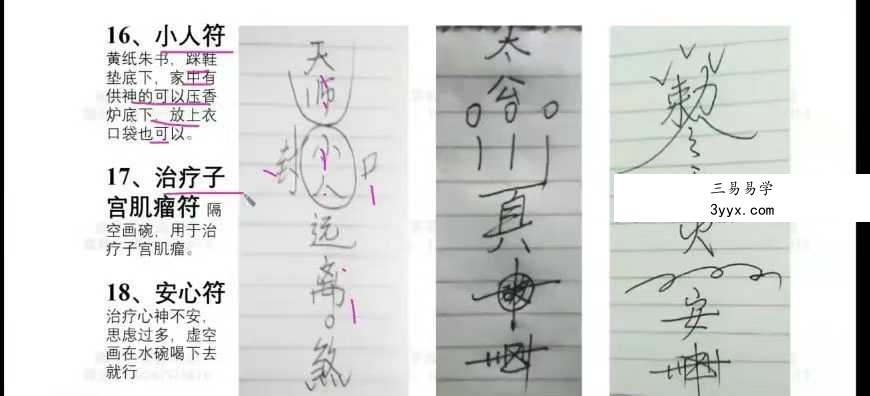 16、小人符
黄纸朱书，踩鞋
垫底下，家中有
供神的可以压香
炉底下，放上衣
口袋也可以。
17、治疗子
宫肌瘤符 隔
空画碗，用于治
疗子宫肌瘤。
18、安心符
治疗心神不安，
思虑过多，虚空
画在水碗喝下去
就行
天
师
封 小人 口
远
离
煞
太
公
真
敕
令
安
三易易学
3yyx.com